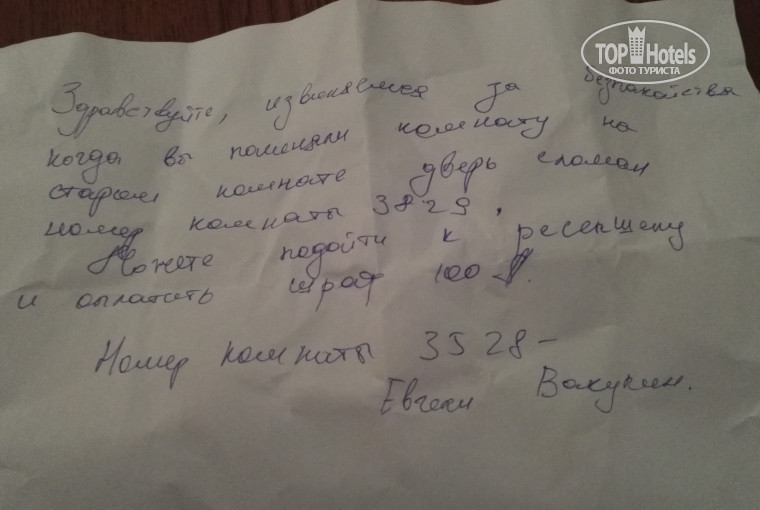 TOP Hotels
ФОТО ТУРИСТА
Здравствуйте, извиняемся за безпакойства
когда вы поменяли комнату на
старом комнате дверь сломан
номер комнаты 3829.
Можете подойти к ресепшену
и оплатить штраф 100 $.
Номер комнаты 3528-
Евгени Вакулин.